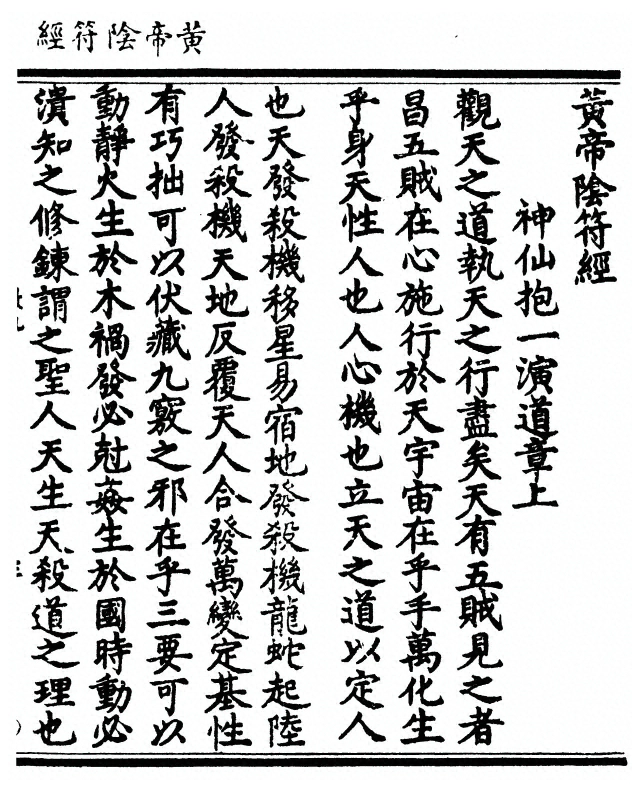 黃帝陰符經
黃帝陰符經
神仙抱一演道章上
觀天之道執天之行盡矣天有五賊見之者
昌五賊在心施行於天宇宙在乎手萬化生
乎身天性人也人心機也立天之道以定人
也天發殺機移星易宿地發殺機龍蛇起陸
人發殺機天地反覆天人合發萬變定基性
有巧拙可以伏藏九竅之邪在乎三要可以
動靜火生於木禍發必尅姦生於國時動必
潰知之修鍊謂之聖人天生天殺道之理也